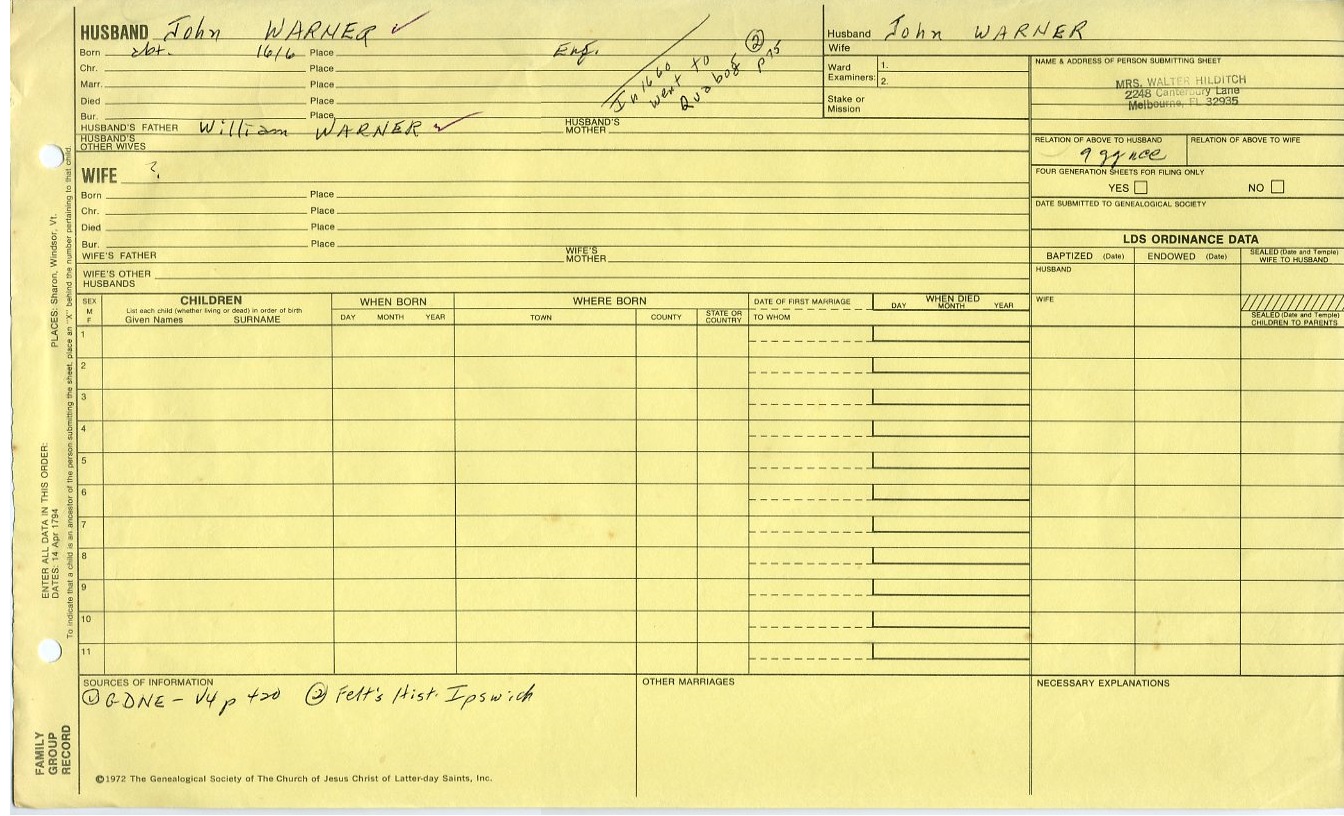 HUSBAND John WARNER ✓
Born abt. 1616 Place Eng.
Chr. Place
Marr. Place
Died Place
Bur. Place
In 1660 went to Quabog ② p 75
HUSBAND'S FATHER William WARNER ✓ HUSBAND'S MOTHER
HUSBAND'S OTHER WIVES
WIFE ?
Born Place
Chr. Place
Died Place
Bur. Place
WIFE'S FATHER WIFE'S MOTHER
WIFE'S OTHER HUSBANDS
Husband John WARNER
Wife
Ward Examiners: 1.
2.
Stake or Mission
NAME & ADDRESS OF PERSON SUBMITTING SHEET
MRS. WALTER HILDITCH
2248 Canterbury Lane
Melbourne, FL 32935
RELATION OF ABOVE TO HUSBAND RELATION OF ABOVE TO WIFE
9 gg nce
FOUR GENERATION SHEETS FOR FILING ONLY
YES NO
DATE SUBMITTED TO GENEALOGICAL SOCIETY
LDS ORDINANCE DATA
BAPTIZED (Date) ENDOWED (Date) SEALED (Date and Temple) WIFE TO HUSBAND
HUSBAND
WIFE
SEALED (Date and Temple) CHILDREN TO PARENTS
SEX M F
CHILDREN
List each child (whether living or dead) in order of birth
Given Names SURNAME
WHEN BORN
DAY MONTH YEAR
WHERE BORN
TOWN COUNTY STATE OR COUNTRY
DATE OF FIRST MARRIAGE
TO WHOM
WHEN DIED
DAY MONTH YEAR
1
2
3
4
5
6
7
8
9
10
11
SOURCES OF INFORMATION
① GDNE - V4 p 720 ② Felt's Hist. Ipswich
OTHER MARRIAGES
NECESSARY EXPLANATIONS
©1972 The Genealogical Society of The Church of Jesus Christ of Latter-day Saints, Inc.
FAMILY GROUP RECORD
ENTER ALL DATA IN THIS ORDER:
DATES: 14 Apr 1794 PLACES: Sharon, Windsor, Vt.
To indicate that a child is an ancestor of the person submitting the sheet, place an "X" behind the number pertaining to that child.